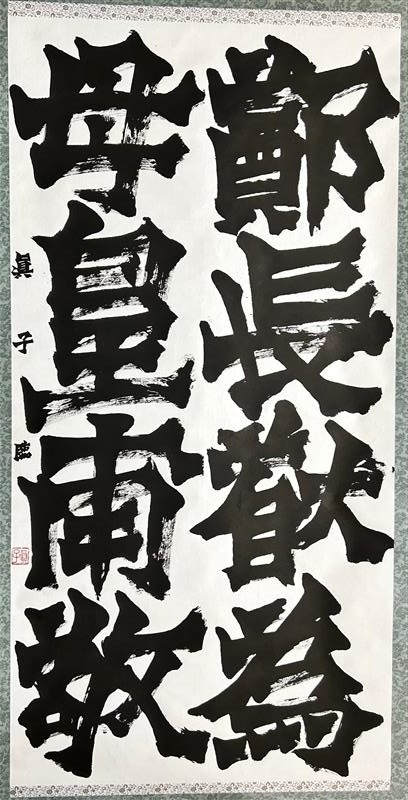 鄭長猷為
母皇甫敬
眞子臨